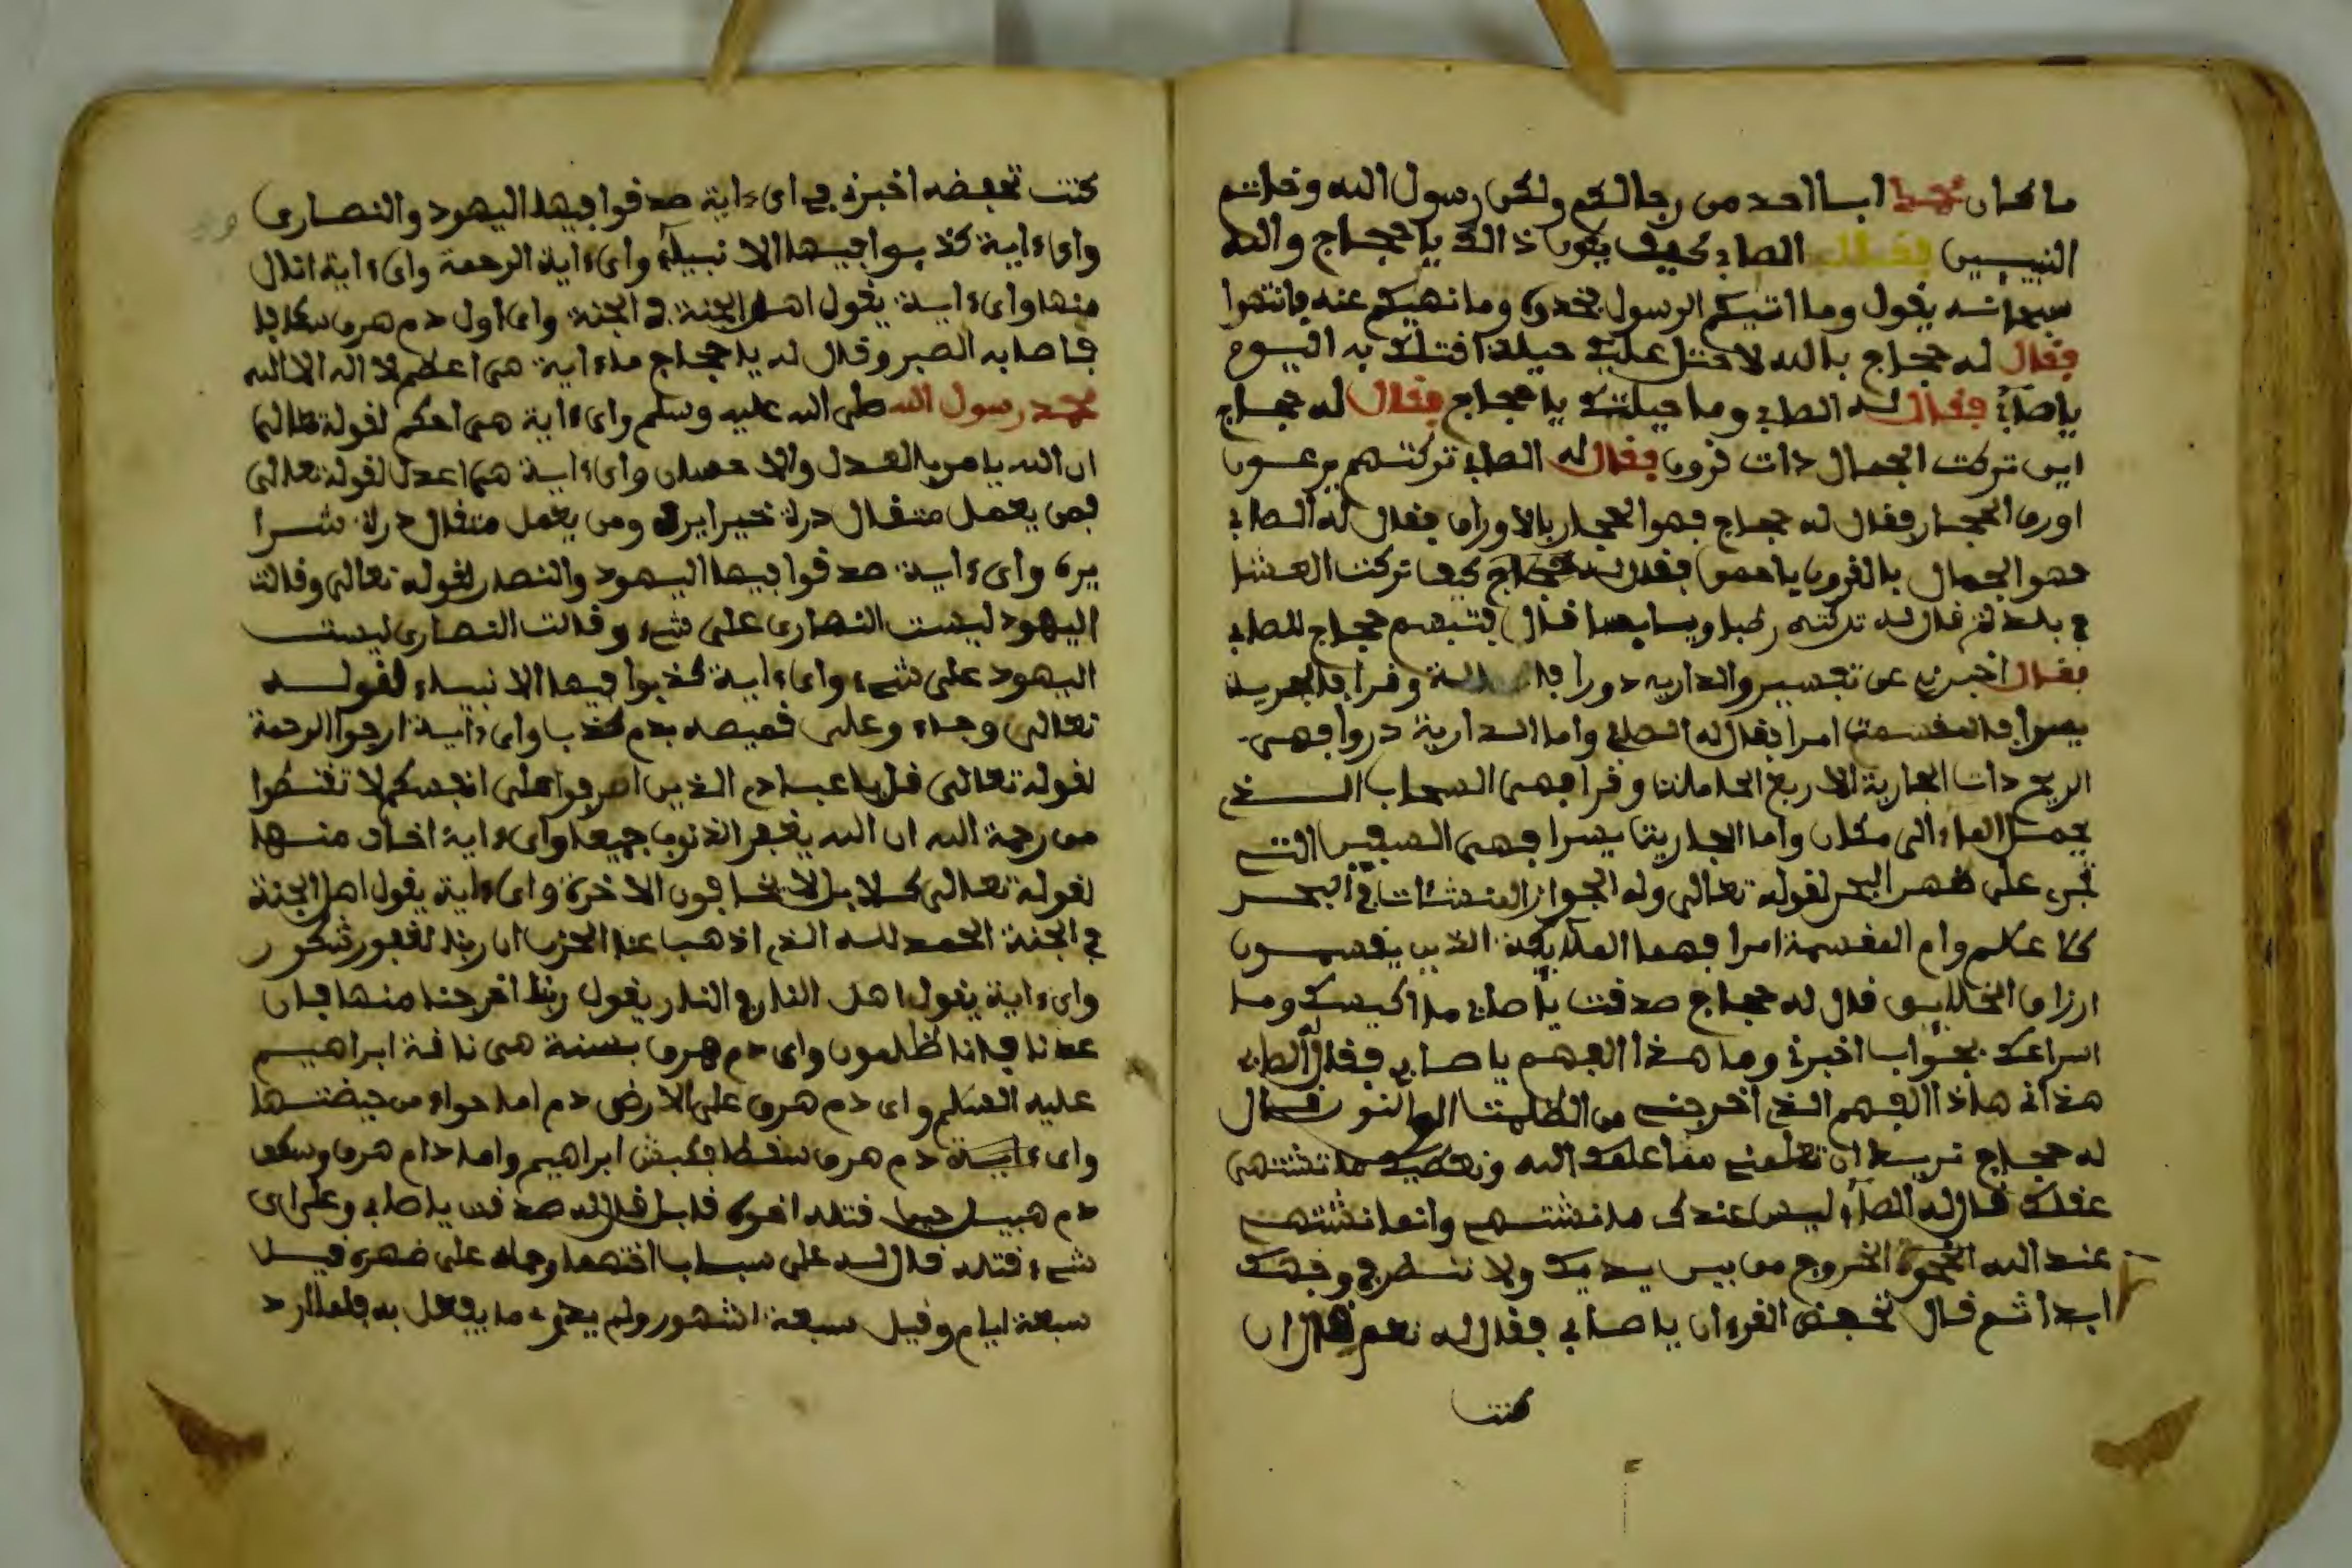 ما كان محمد ابا احد من رجالكم ولكن رسول الله وخاتم
النبيين فقال الصابي كيف يكون ذالك يا حجاج والله
سبحانه يقول وما اتيكم الرسول فخذوه وما نهيكم عنه فانتهوا
فقال له حجاج بالله لاحتل عليك حيلة اقتلك به اليوم
يا صابي فقال له الصابي وما حيلتك يا حجاج فقال له حجاج
اين تركت الجمال ذات قرون فقال له الصابي تركتهم يرعون
اورق الحجار فقال له حجاج فهوا الحجار بالاوراق فقال له الصابي
فهوا الجمال بالقرون يا احمق فقال له حجاج كيف تركت العشا
في بلدكم قال له تركته رطبا ويابسا قال فتبسم حجاج للصابي
فقال اخبرني عن تفسير والذاريه ذورا وقرا فالجرية
يسرا فالمقسمت امرا فقال له الصابي واما الذارية ذروا فهى
الريح ذات الجارية الاربع الحاملات وقرا فهى السحاب الذي
يحمل الماء الى مكان واما الجاريت يسرا فهى السفن التى
تجرى على ظهر البحر لقوله تعالى وله الجوار المنشئات في البحر
كالاعلم وام المقسمة امرا فهما الملايكة الذين يقسمون
ارزاق الخلايق قال له حجاج صدقت يا صابي ما اكيسك وما
اسراعك بجواب اخبرني وما هذا الفهم يا صابي فقال له الصابي
هذاني هاذا الفهم الذي اخرجني من الظلمت الى النور قال
له حجاج تريد ان تعلمني مما علمك الله ونعطيك ما تشتهى
عقلك قال له الصابي ليس عندك ما نشتهى وانما نشتهى
عند الله النجوة الخروج من بين يديك ولا ننظر في وجهك
ابدا ثم قال تحفض القرءان يا صابي فقال له نعم قال ان
كنت
كنت تحفضه اخبرني في اي ءاية صدقوا فيها اليهود والنصارى
واي ءاية كذبوا فيها الانبياء واي ءاية الرحمة واي ءاية
منها واي ءاية يقول اهل الجنة في الجنة واي اول دم هرق
فاصابه الصبر وقال له يا حجاج ماءاية هى اعظم لا اله الا الله
محمد رسول الله صلى الله عليه وسلم واي ءاية هى احكم لقوله تعالى
ان الله يامر بالعدل والاحسان واي ءاية هى اعدل لقوله تعالى
فمن يعمل مثقال ذرة خيرا يره ومن يعمل مثقال ذرة شرا
يره واي ءاية صدقوا فيها اليهود والنصار لقوله تعالى وقالت
اليهود ليست النصارى على شىء وقالت النصارى ليست
اليهود على شىء واي ءاية كذبوا فيها الانبياء لقوله
تعالى وجاء وعلى قميصه بدم كذب واي ءاية ارجوا الرحمة
لقوله تعالى قل يا عبادي الذين اصرفوا على انفسكم لا تقنطوا
من رحمة الله ان الله يغفر الذنوب جميعا واي ءاية اخاف منها
لقوله تعالى كلا بل لا يخافون الاخرة واي ءاية يقول اهل الجنة
في الجنة الحمد لله الذي اذهب عنا الحزن ان ربنا لغفور شكور
واي ءاية يقول اهل النار في النار يقول ربنا اخرجنا منها فان
عدنا فانا ظلمون واي دم هرق بسنة هى ناقة ابراهيم
عليه السلم واي دم هرق على الارض دم اما حواء من حيضتها
واي ءاية دم هرق سقط فكبش ابراهيم واما دام هرق وسكن
دم هبيل حيما قتله اخوه قابل قال له صدقت يا صابي وعلى اي
شىء قتله قال له على سباب اختهما وحماه على ضهره قيل
سبعة ايام وقيل سبعة اشهور ولم يدرى ما يفعل به فلما اراد